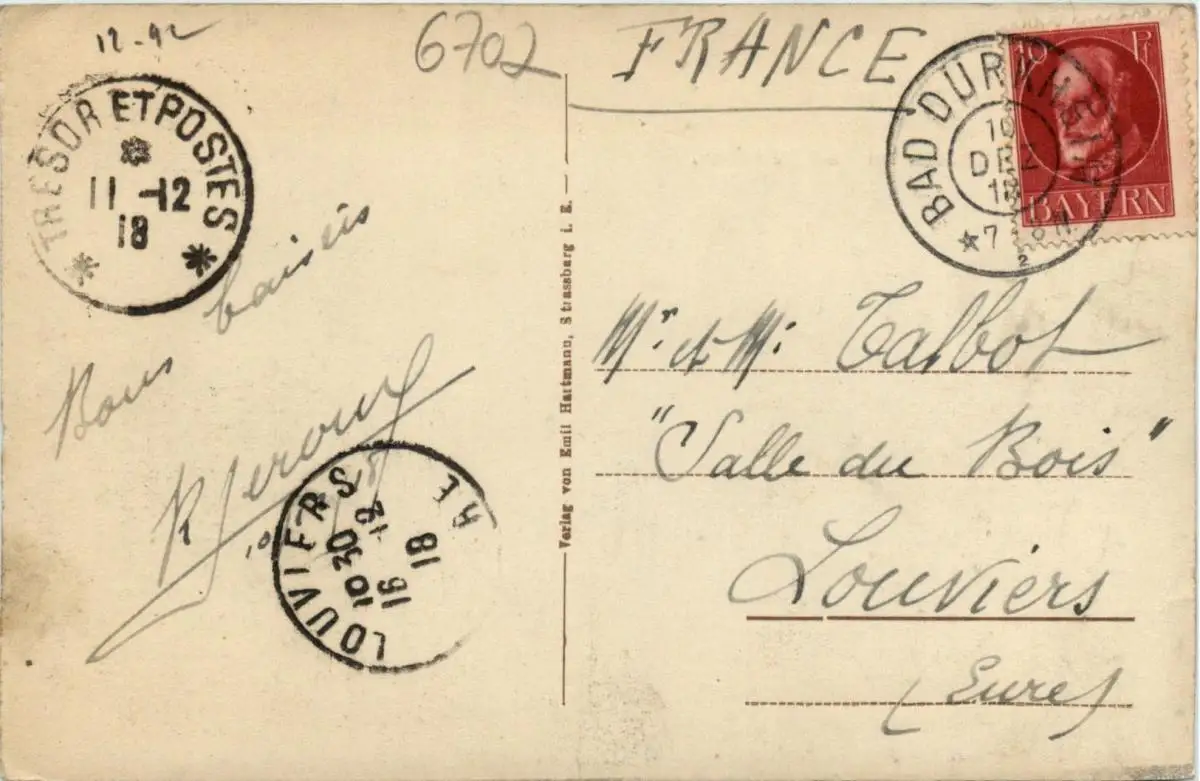 12-92
6702
FRANCE
TRESOR ET POSTES
11-12
18
BAD DÜRKHEIM
10
DEZ
18
2
10 Pf
BAYERN
Bons baisers
Mr et Me Talbot
"Salle du Bois"
Louviers
(Eure)
LOUVIERS
10 30
16 - 12
18
Verlag von Emil Hartmann, Strassburg i. E.